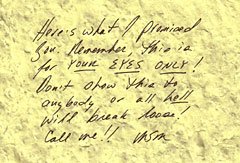 Here's what I promised
you. Remember, this is
for YOUR EYES ONLY!
Don't show this to
anybody or all hell
will break loose!
Call me!!